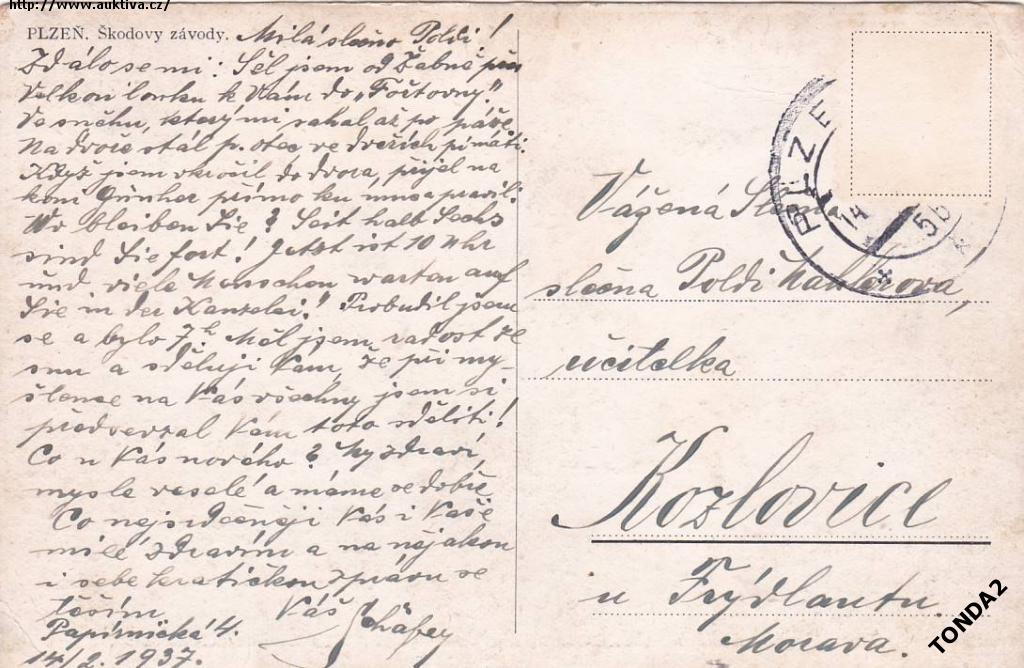 http://www.auktiva.cz/
PLZEŇ. Škodovy závody. Milá slečno Poldi!
Zdálo se mi: Šel jsem od Žabně přes
Velkou louku k Vám do „Fořtovny".
Ve sněhu, který mi sahal až po páže.
Na dvoře stál p. otec ve dveřích
Když jsem vkročil do dvora, přijel na
koni Günther přímo ku mne a pravil:
Wo bleiben Sie? Seit halb Sechs
sind Sie fort! Jetzt ist 10 Uhr
und viele Menschen warten auf
Sie in der Kanzelei!" Probudil jsem
se a bylo 7h. Měl jsem radost ze
snu a sděluji Vám, že při my-
šlence na Vás všechny jsem si
předsevzal Vám toto sděliti!
Co u Vás nového? My zdraví,
mysle veselé a máme se dobře
Co nejsrdečněji Vás i Vaše
milé zdravím a na nějakou
i sebe kratičkou zprávu se
těším Váš
Papírnická 4.
14/2. 1937.
PLZEŇ
14
Vážená
slečna Poldi
učitelka
Kozlovice
u Frýdlantu
Morava.
TONDA2